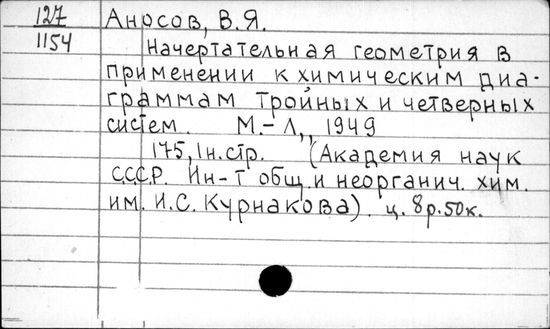 127
1154
Аносов, В.Я.
Начертательная геометрия в
применении к химическим диа-
граммам тройных и четверных
систем. М.-Л., 1949
175, 1н.стр. (Академия наук
СССР. Ин-т общ. и неорганич. хим.
им. И.С. Курнакова). ц. 8р.50к.